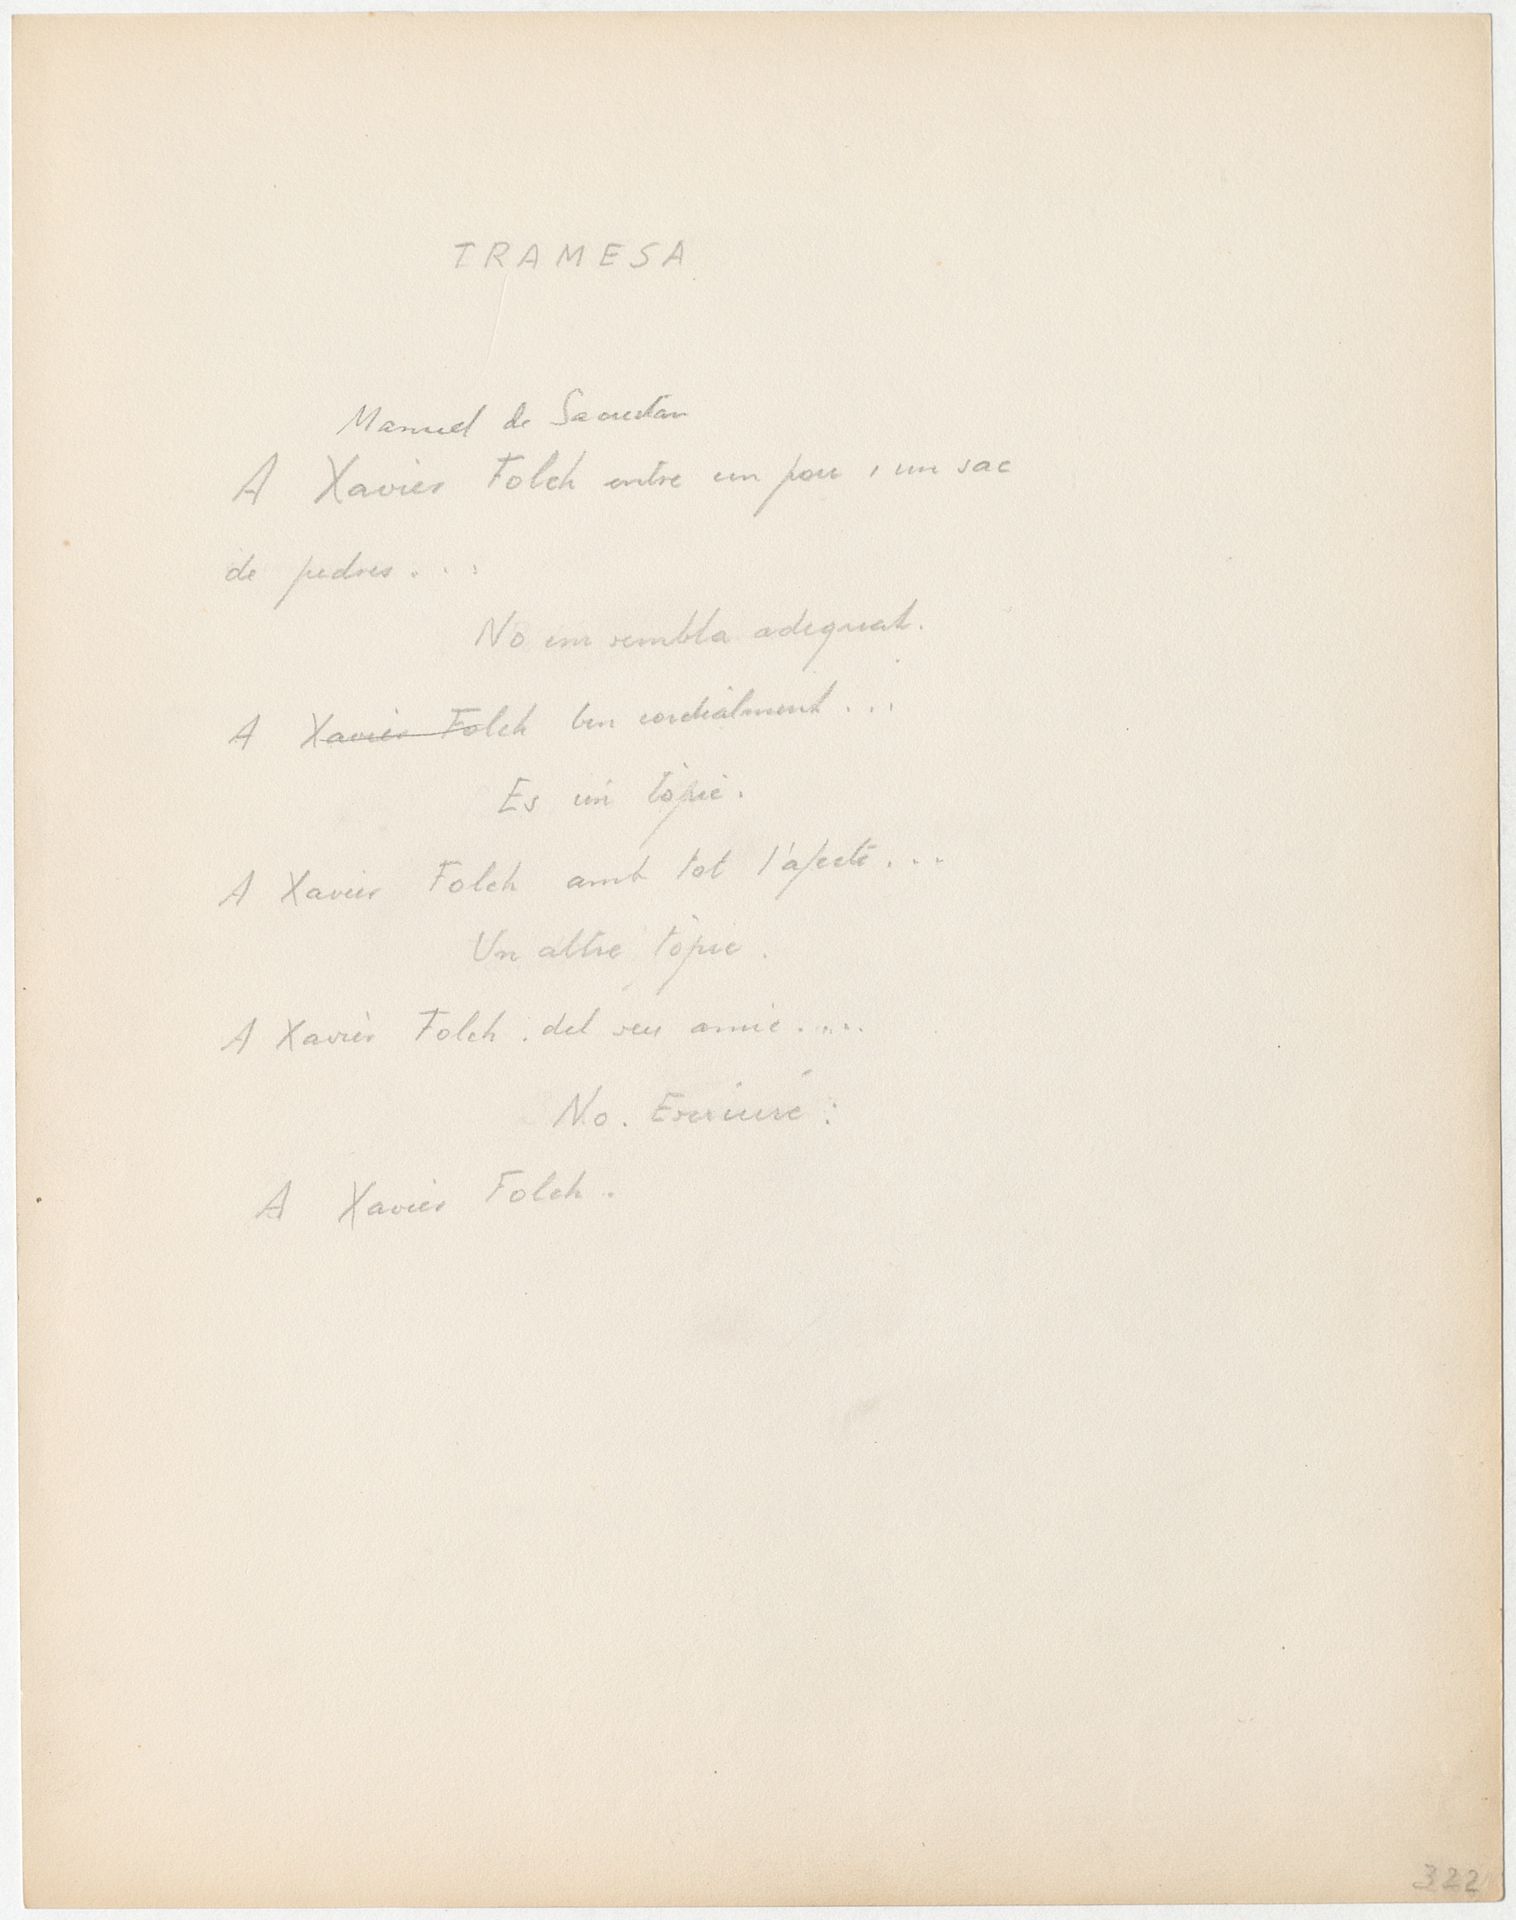 TRAMESA
Manuel de Seoustan
A Xavier Folch entre un pou i un sac
de pedres...
No em sembla adequat.
A Xavier Folch ben cordialment...
Es un tòpic.
A Xavier Folch amb tot l'afecte...
Un altre tòpic.
A Xavier Folch, del seu amic....
No. Escriuré:
A Xavier Folch.
322